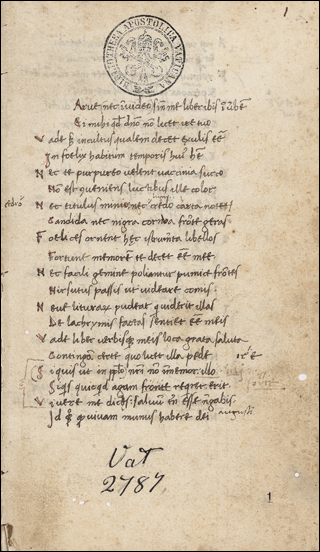 1
BIBLIOTHECA APOSTOLICA VATICANA
Arue nec ĩuideo sin̄ me liber ibis ĩ urbē
Ei mihi qđ dño nõ licet ire tuo
Vade incultus qualem decet exulis eē
Infoelix habitum temporis huiꝰ hē
Nec te purpureo velent vaccinia succo
Nõ est q̃ueniens luctibus ille color
Nec titulus minio nec carta notet
Candida nec nigra cornua fronte geras
Foelices ornent hec libellos
Fortunę memorē te decet eē meę
Nec facili geminę poliantur pumice frõtes
Hirsutus passis ut uideare comis
Neue liturarx pudeat qui uiderit illas
De lachrymis factas sentiet eē meis
Vade liber verbisq; meis loca grata saluta
Contingã certe quo licet illa pede
Siquis ut in pplo nri nõ īmemor illo
Siqs quid agam requirēt erit
Viuere me dices: saluū eē negabis
Id qq̨ viuam munus habere dei
Vat
2787
1